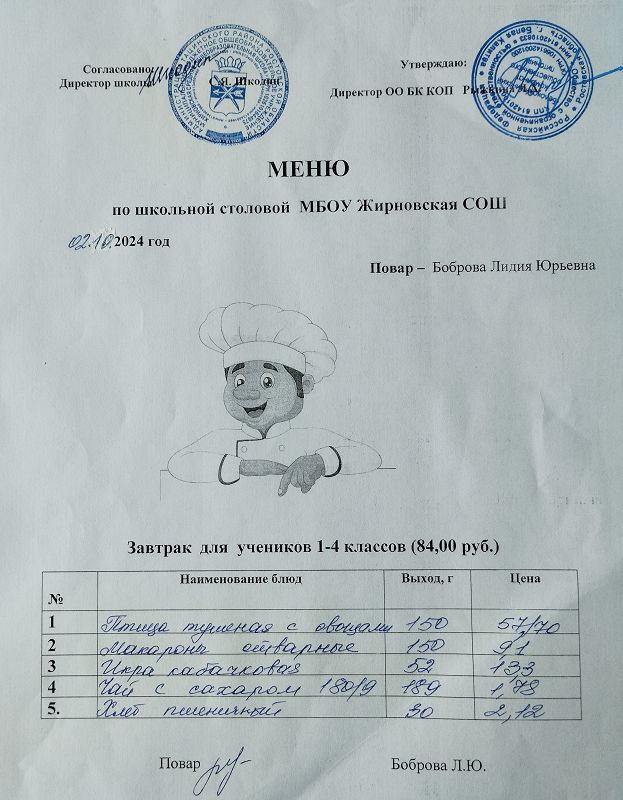 Согласовано:
Утверждаю:
Директор школы С.Я. Школин
Директор ОО БК КОП
МЕНЮ
по школьной столовой МБОУ Жирновская СОШ
02.10.2024 год
Повар – Боброва Лидия Юрьевна
Завтрак для учеников 1-4 классов (84,00 руб.)
№ Наименование блюд Выход, г Цена
1 Птица тушеная с овощами 150 57,70
2 Макароны отварные 150 91
3 Икра кабачковая 52 133
4 Чай с сахаром 180/9 189 1,78
5. Хлеб пшеничный 30 2,12
Повар Боброва Л.Ю.